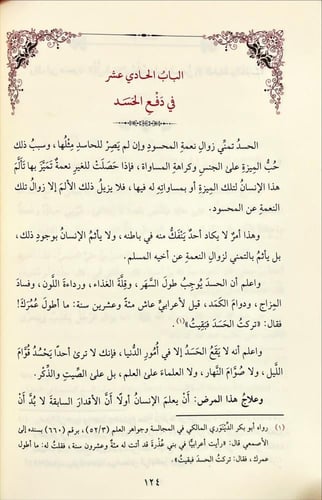 الباب الحادي عشر
في دَفْعِ الحَسَد
الحسدُ تمنِّي زوالِ نعمةِ المحسودِ وإن لم يَصِرْ للحاسدِ مِثْلُها، وسببُ ذلك
حُبُّ المِيزةِ على الجنسِ وكراهةِ المساواة، فإذا حَصَلَتْ للغيرِ نعمةٌ تَمَيَّزَ بها تَأَلَّمَ
هذا الإنسانُ لتلك المِيزةِ أو بمساواتِه له فيها، فلا يزيلُ ذلك الألمَ إلا زوالُ تلك
النعمةِ عن المحسود.
وهذا أمرٌ لا يكاد أحدٌ يَنْفَكُّ منه في باطنه، ولا يأثمُ الإنسانُ بوجودِ ذلك،
بل يأثمُ بالتمني لزوالِ النعمةِ عن أخيه المسلم.
واعلم أن الحسدَ يُوجِبُ طولَ السَّهَر، وقِلَّةَ الغذاء، ورداءةَ اللَّون، وفسادَ
المِزاج، ودوامَ الكَمَد، قيل لأعرابيٍّ عاش مئةً وعشرين سنة: ما أطولَ عُمُرَكَ!
فقال: «تركتُ الحَسَدَ فبَقِيتُ»(١).
واعلم أنه لا يَقَعُ الحَسَدُ إلا في أُمُورِ الدنيا، فإنك لا ترى أحدًا يَحْسُدُ قُوَّامَ
اللَّيل، ولا صُوَّامَ النَّهار، ولا العلماءَ على العلم، بل على الصِّيتِ والذِّكْر.
وعلاجُ هذا المرض: أَنْ يعلمَ الإنسانُ أولًا أنَّ الأقدارَ السابقةَ لا بُدَّ أَنْ
(١) رواه أبو بكر الدِّيْنَوَري المالكي في المجالسة وجواهر العلم (٥٢/٣)، برقم (٦٦٠) بسنده إلى
الأصمعي قال: «رأيت أعرابيًّا في بني عُذْرة قد أتت له مئة وعشرون سنة، فقلتُ له: ما أطول
عمرك، فقال: تركتُ الحسدَ فبقيتُ».
١٢٤